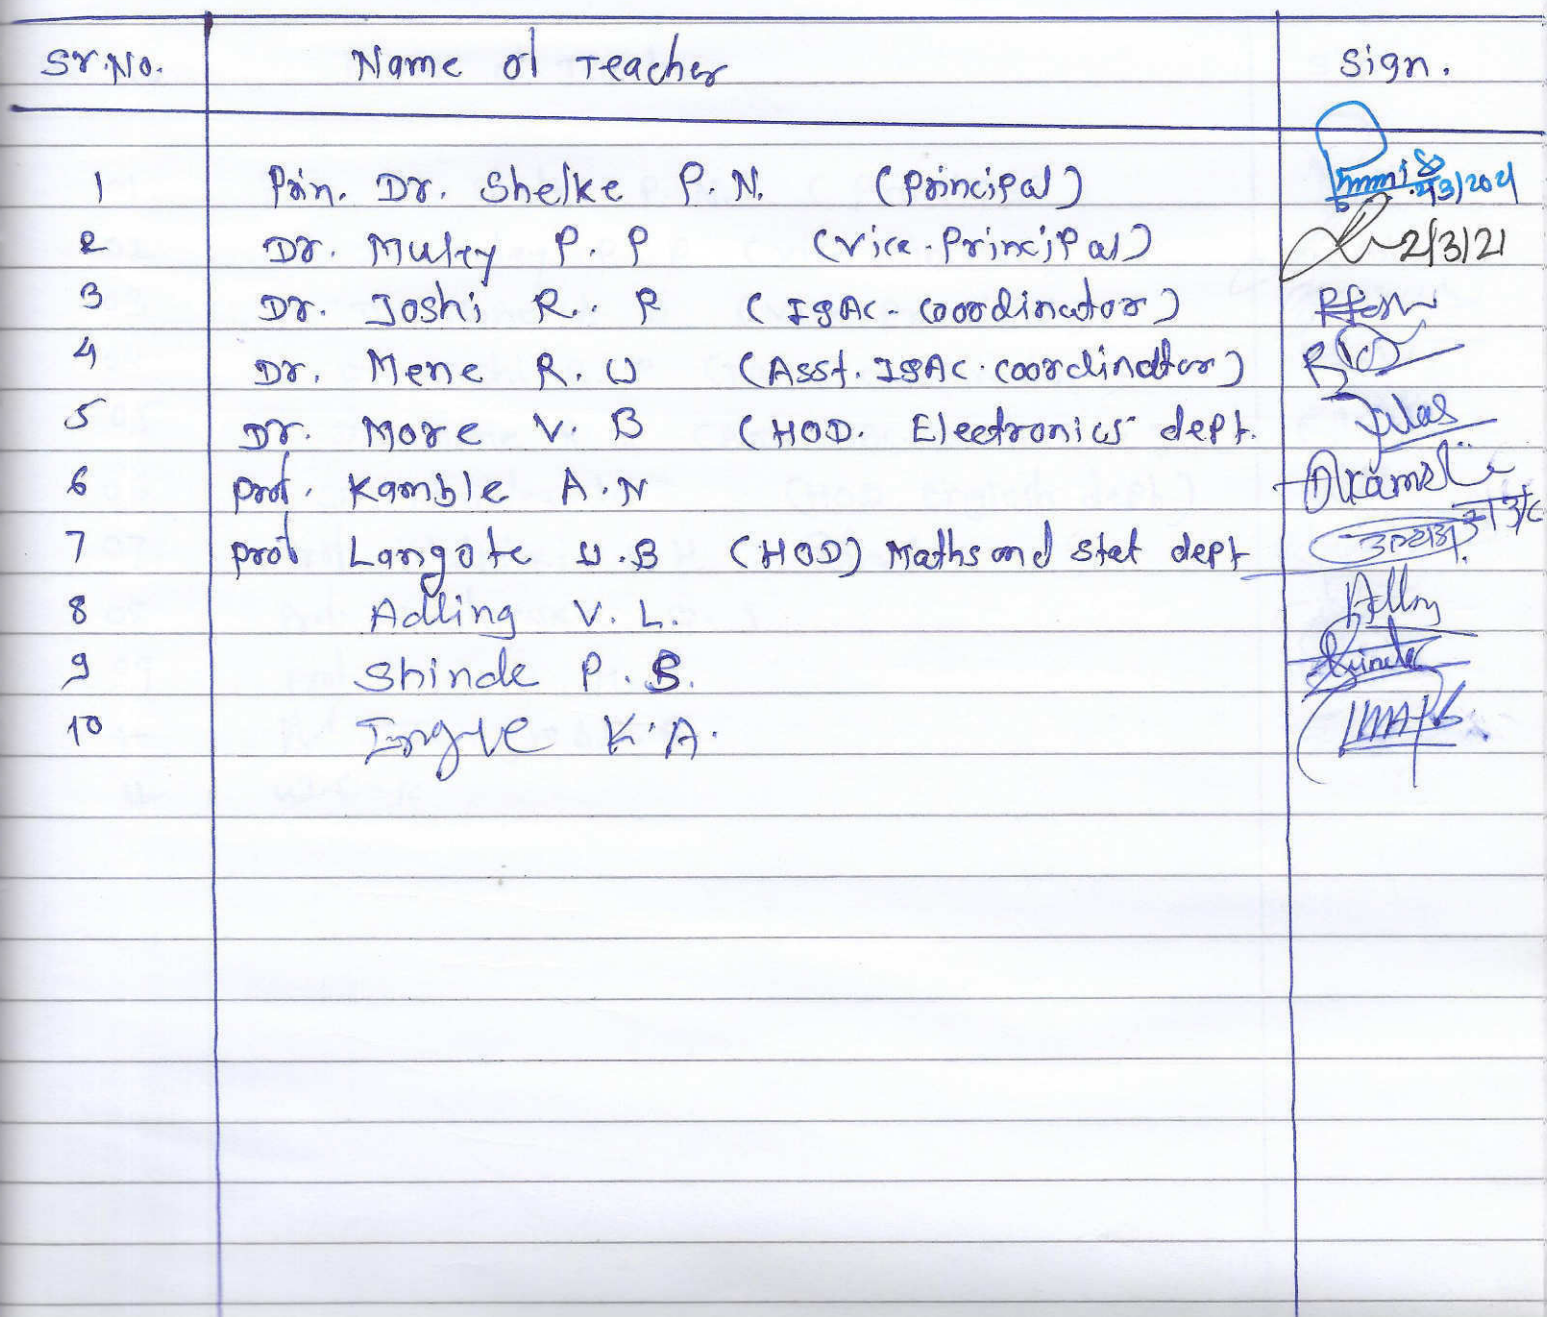 Sr.No. Name of Teacher Sign.
1 Prin. Dr. Shelke P.N. (Principal)
2 Dr. Muley P.P (Vice-Principal) 2/3/21
3 Dr. Joshi R.. P (IQAC-Coordinator)
4 Dr. Mene R.U (Asst. IQAC. coordinator)
5 Dr. More V.B (HOD. Electronics dept.
6 Prof. Kamble A.N
7 Prof Langote U.B (HOD) Maths and Stat dept
8 Adling V.L.
9 Shinde P.S.
10 Ingle K.A.